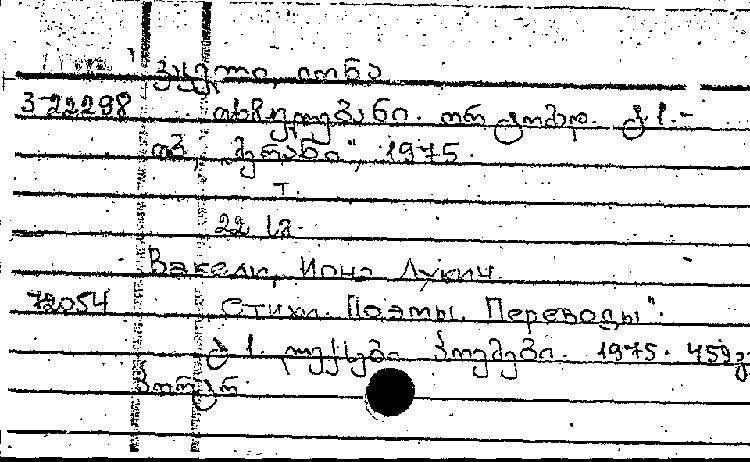 ვაკელი, იონა
3-22298 თხზულებანი. ორ ტომად. ტ 1.-
თბ, „მერანი", 1975.
Т.
22 სმ.
Вакели, Иона Лукич
72054 Стихи. Поэмы. Переводы".
ტ 1. ლექსები. პოემები. 1975. 459გვ
პორტრ.